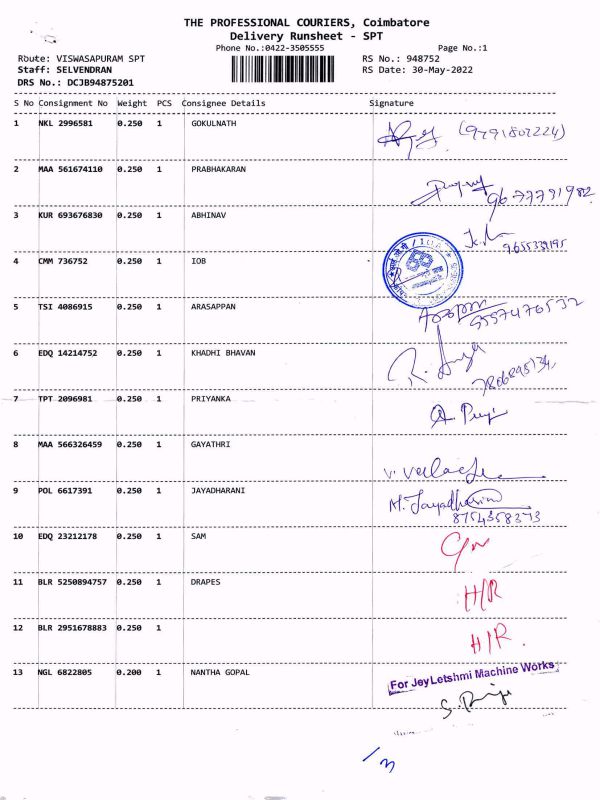 THE PROFESSIONAL COURIERS, Coimbatore
Delivery Runsheet - SPT
Phone No.:0422-3505555 Page No.:1
Route: VISWASAPURAM SPT RS No.: 948752
Staff: SELVENDRAN RS Date: 30-May-2022
DRS No.: DCJB94875201
S No Consignment No Weight PCS Consignee Details Signature
1 NKL 2996581 0.250 1 GOKULNATH
2 MAA 561674110 0.250 1 PRABHAKARAN
3 KUR 693676830 0.250 1 ABHINAV
4 CMM 736752 0.250 1 IOB
5 TSI 4086915 0.250 1 ARASAPPAN
6 EDQ 14214752 0.250 1 KHADHI BHAVAN
7 TPT 2096981 0.250 1 PRIYANKA
8 MAA 566326459 0.250 1 GAYATHRI
9 POL 6617391 0.250 1 JAYADHARANI M. Jayadharani
8754358373
10 EDQ 23212178 0.250 1 SAM
11 BLR 5250894757 0.250 1 DRAPES H/R
12 BLR 2951678883 0.250 1 H/R.
13 NGL 6822805 0.200 1 NANTHA GOPAL For Jey Letshmi Machine Works